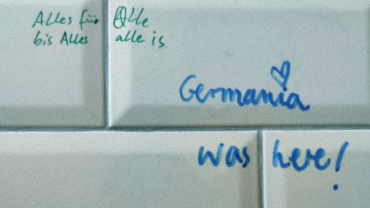 Alles für Alle
bis Alles alle is
Germania
was here!